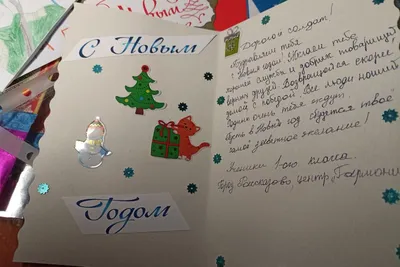 С Новым
Годом
Дорогой солдат!
Поздравляем тебя
с Новым годом! Желаем тебе
хорошей службы и добрых товарищей
верных друзей. Возвращайся скорее
домой с победой. Все люди нашей
Родины очень тебя ждут.
Пусть в Новый год сбудется твоё
самое заветное желание!
Ученики 1-ого класса.
Город Рассказово центр "Гармония